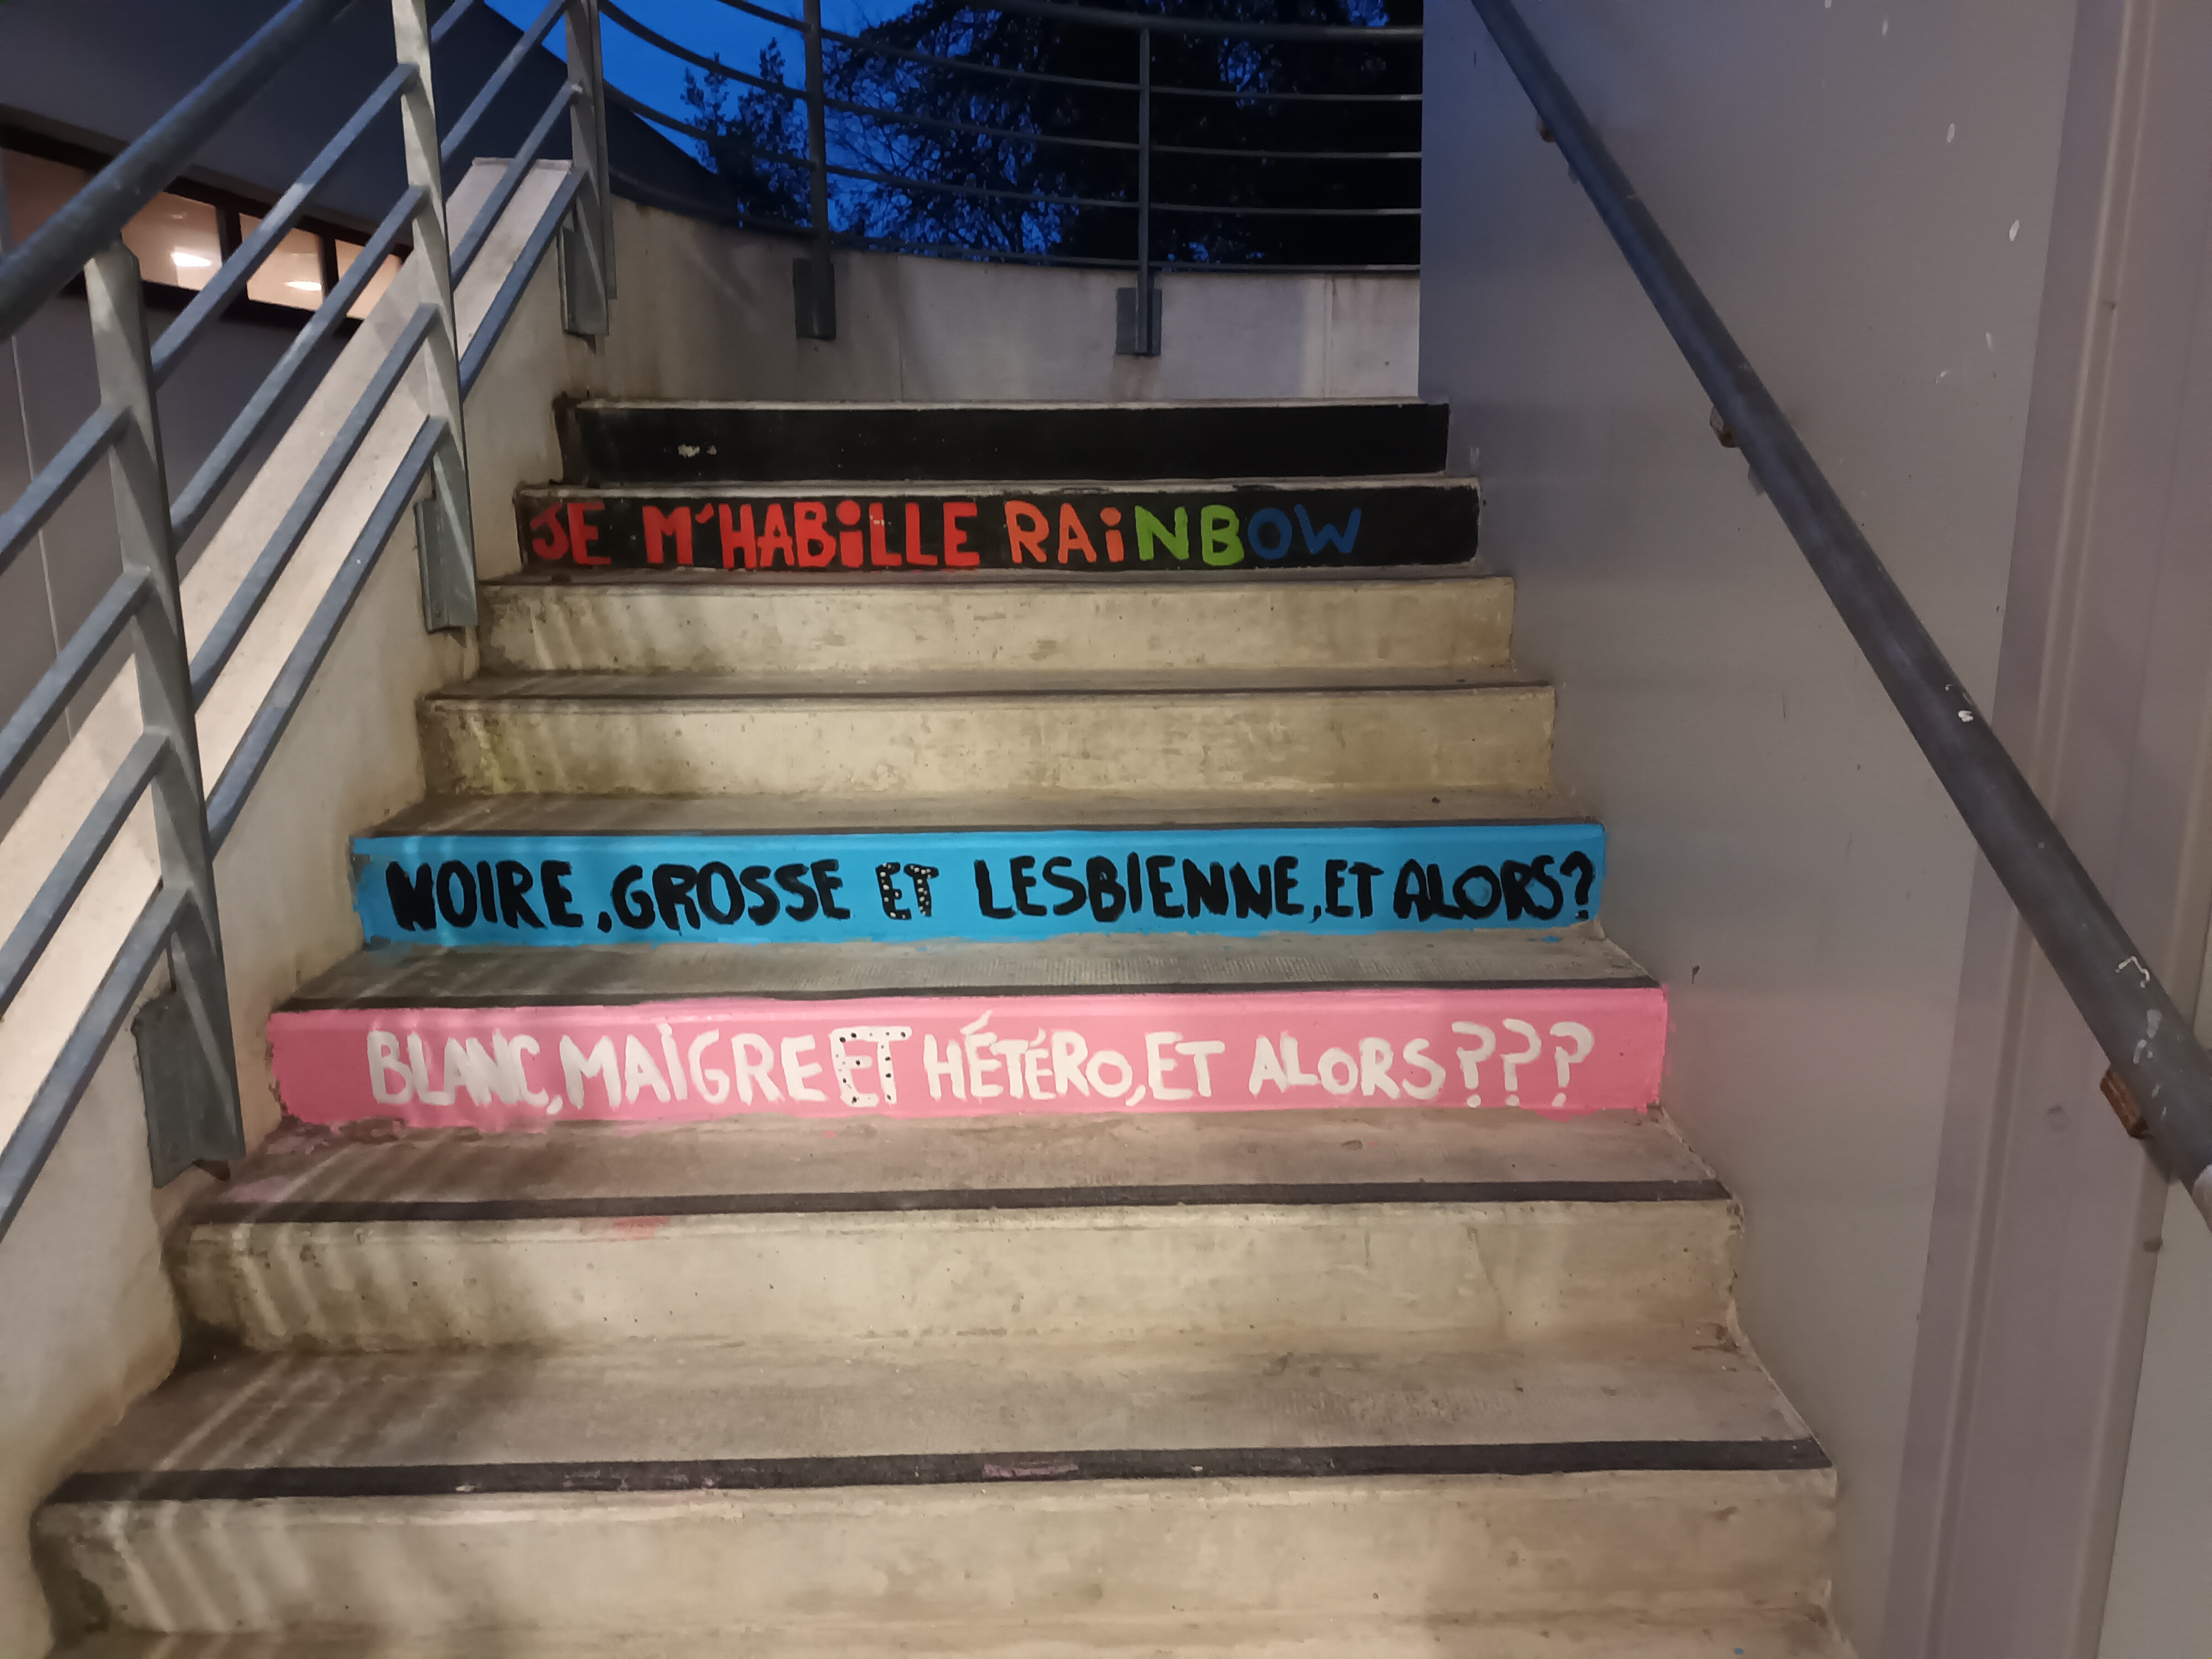 JE M'HABiLLE RAiNBOW
NOIRE, GROSSE ET LESBIENNE, ET ALORS?
BLANC, MAiGRE ET HÉTÉRO, ET ALORS???